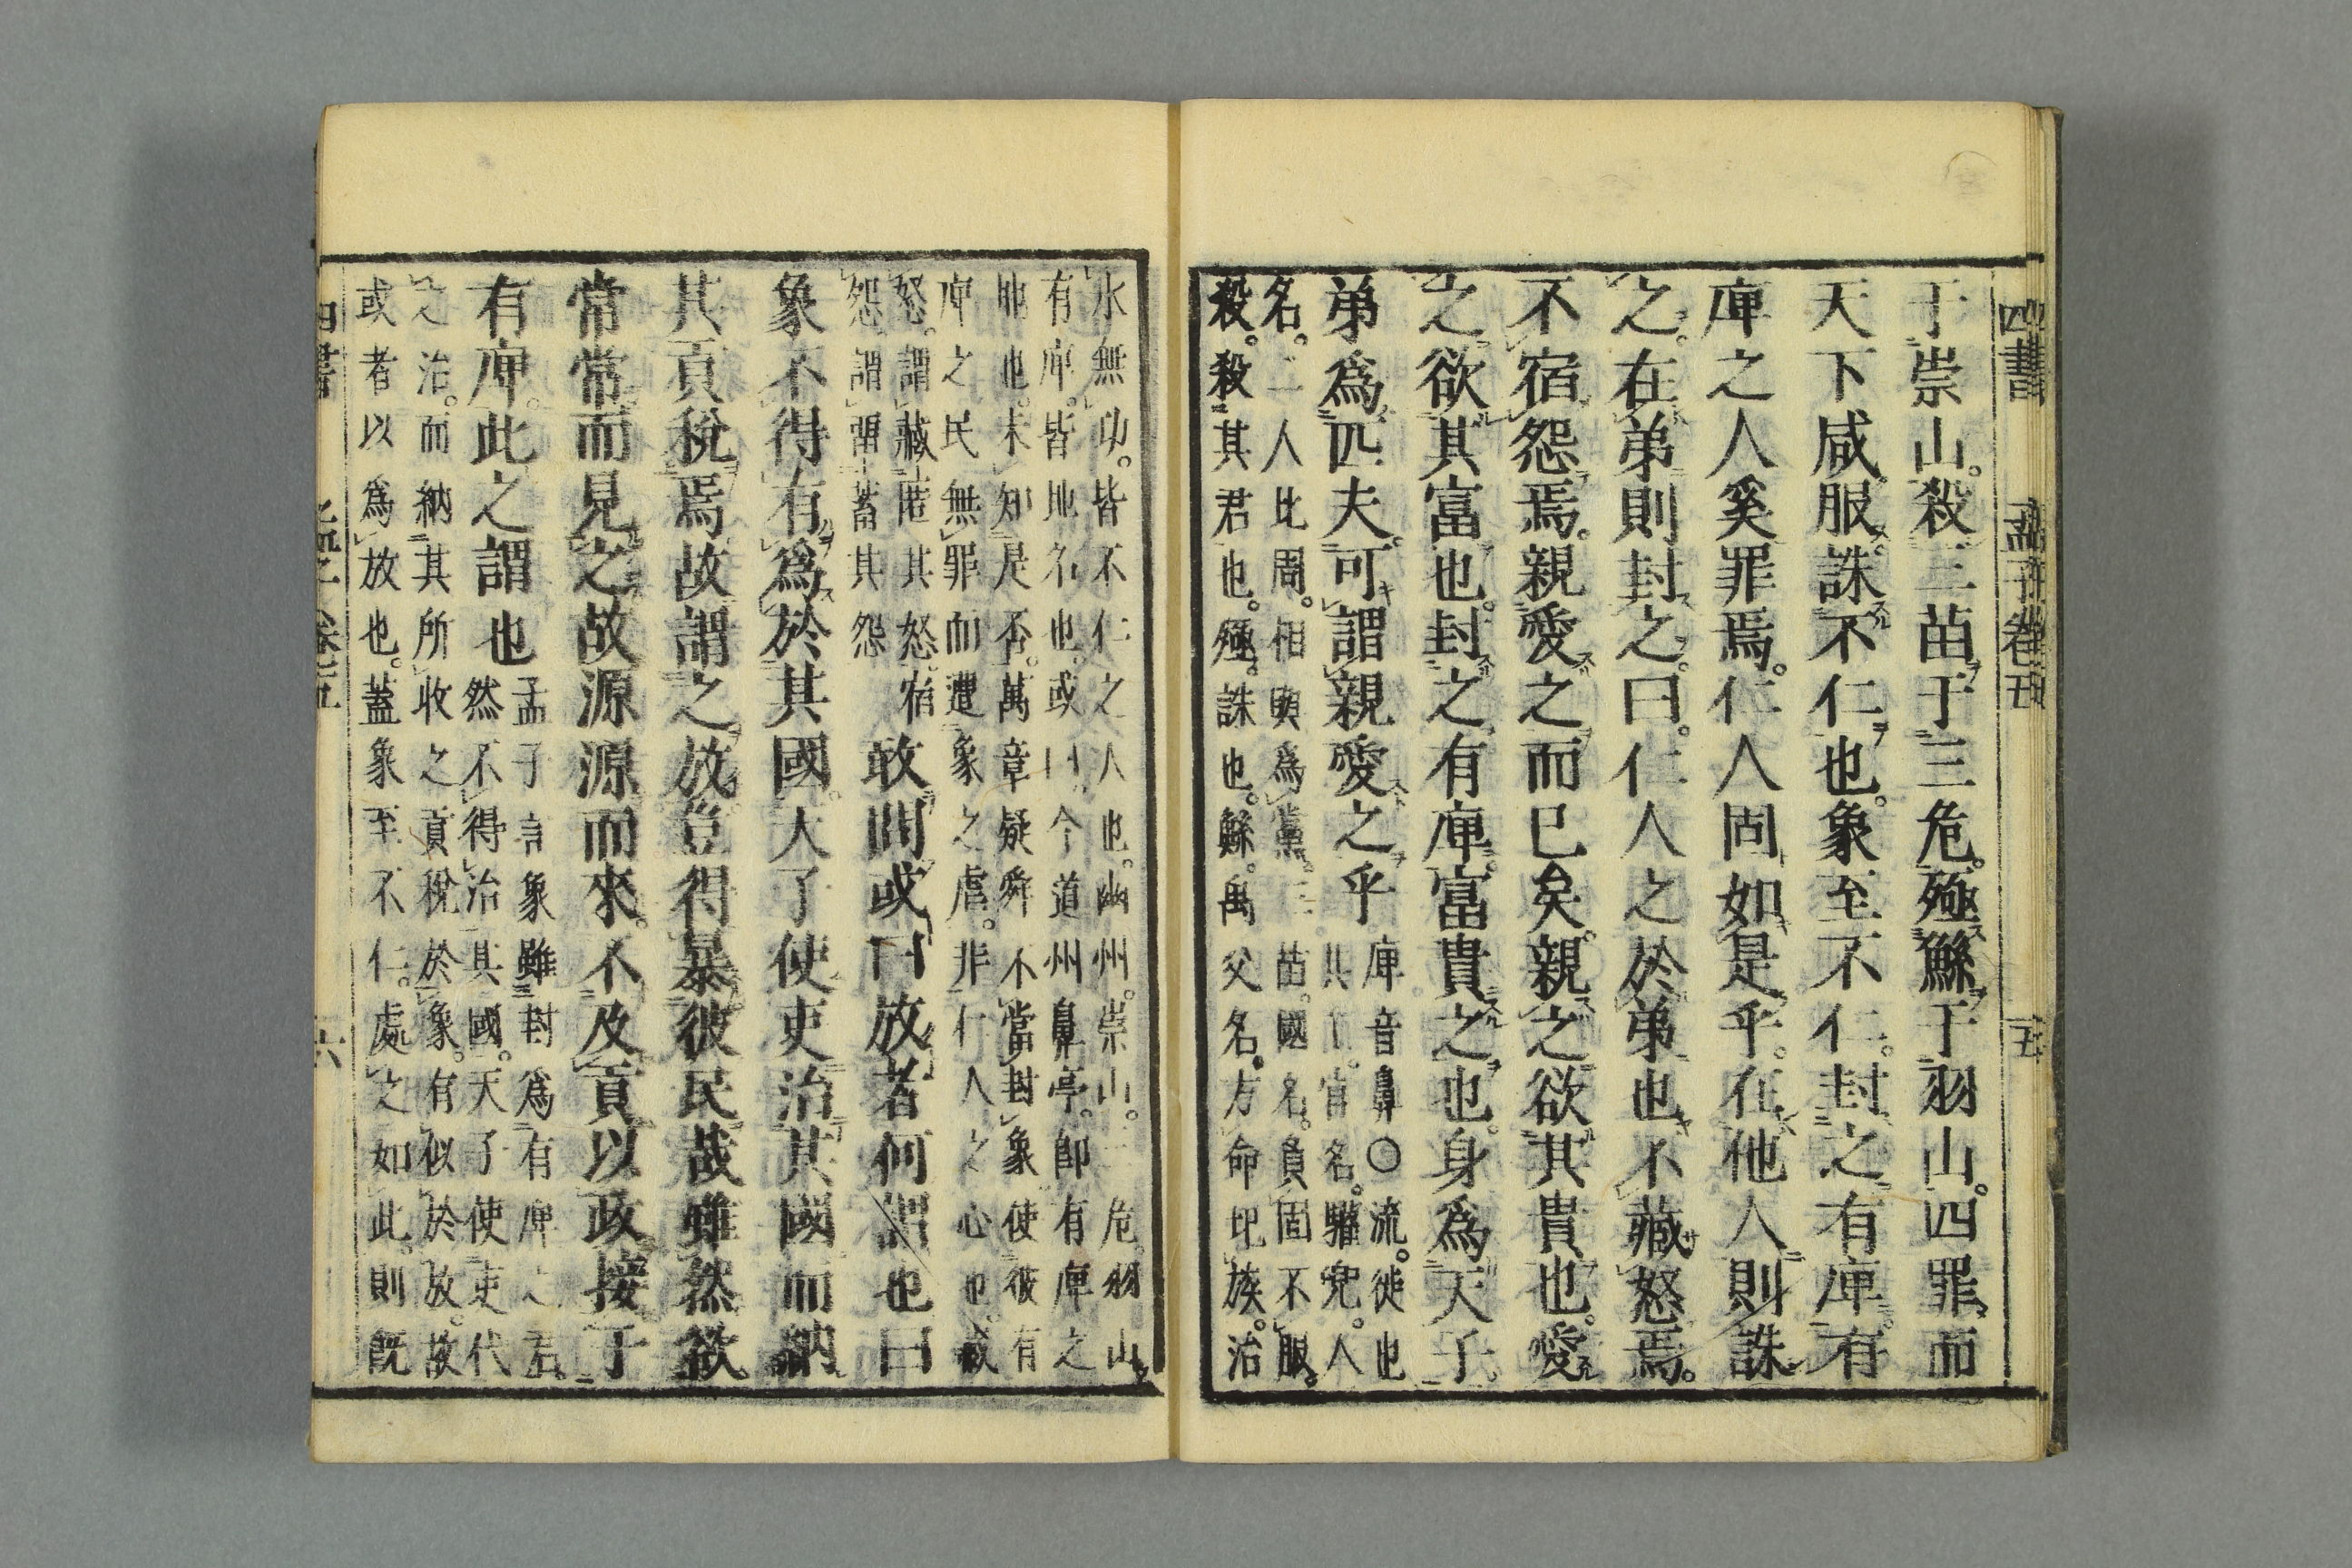 四書 孟子卷五 五
于崇山。殺三苗于三危。殛鯀于羽山。四罪而
天下咸服。誅不仁也。象至不仁。封之有庳。有
庳之人奚罪焉。仁人固如是乎。在他人則誅
之。在弟則封之。曰。仁人之於弟也不藏怒焉。
不宿怨焉。親愛之而已矣。親之欲其貴也。愛
之欲其富也。封之有庳。富貴之也。身爲天子。
弟爲匹夫。可謂親愛之乎
庳音鼻○流。徙也
共工。官名。驩兜。人
名。二人比周。相與爲黨。三苗。國名。負固不服。
殺。殺其君也。殛。誅也。鯀。禹父名。方命圮族。治
水無功。皆不仁之人也。幽州。崇山。三危。羽山
有庳。皆地名也。或曰。今道州鼻亭。即有庳之
地也。未知是否。萬章疑舜不當封象。使彼有
庳之民無罪而遭象之虐。非仁人之心也。藏
怒。謂藏匿其怒。宿
怨。謂留蓄其怨
敢問或曰放者何謂也曰
象不得有爲於其國。天子使吏治其國而納
其貢稅焉故謂之放。豈得暴彼民哉雖然欲
常常而見之。故源源而來。不及貢以政接于
有庳。此之謂也
孟子言象雖封爲有庳之君。
然不得治其國。天子使吏代
之治。而納其所收之貢稅於象。有似於放。故
或者以爲放也。蓋象至不仁。處之如此。則既
四書 孟子卷五 六